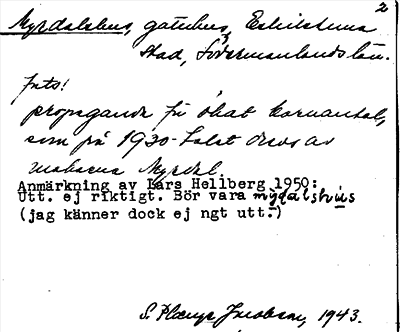 2
Myrdalshus, gatuhus, Eskilstuna
stad, Södermanlands län.
Ints!
propaganda för ökat barnantal,
som på 1930-talet drevs av
makarna Myrdal.
Anmärkning av Lars Hellberg 1950:
Utt. ej riktigt. Bör vara mýdalshùs
(jag känner dock ej ngt utt.)
S. Jacobson, 1943.